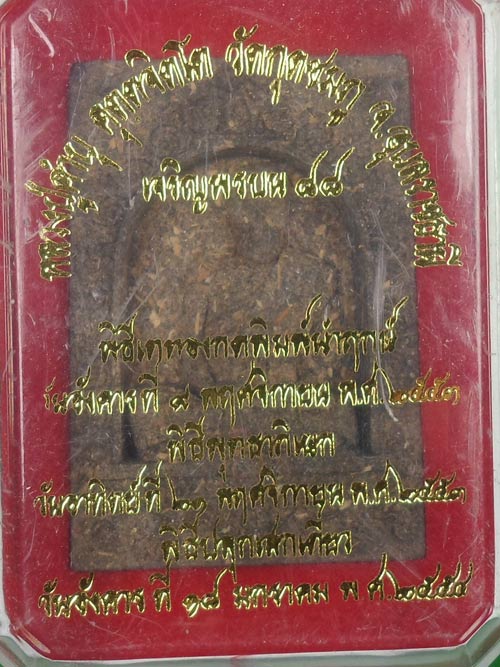 หลวงปู่คำบุ คุตฺตจิตฺโต วัดกุดชมภู จ.อุบลราชธานี
เจริญพรบน ๘๘
พิธีเททองกดพิมพ์นำฤกษ์
วันอังคารที่ ๙ พฤศจิกายน พ.ศ.๒๕๕๓
พิธีพุทธาภิเษก
วันอาทิตย์ที่ ๒๑ พฤศจิกายน พ.ศ.๒๕๕๓
พิธีปลุกเสกเดี่ยว
วันอังคาร ที่ ๑๘ มกราคม พ.ศ.๒๕๕๔